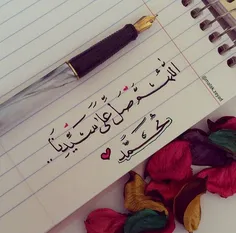 اللَّهُمَّ صَلِّ عَلَى سَيِّدِنَا
مُحَمَّد